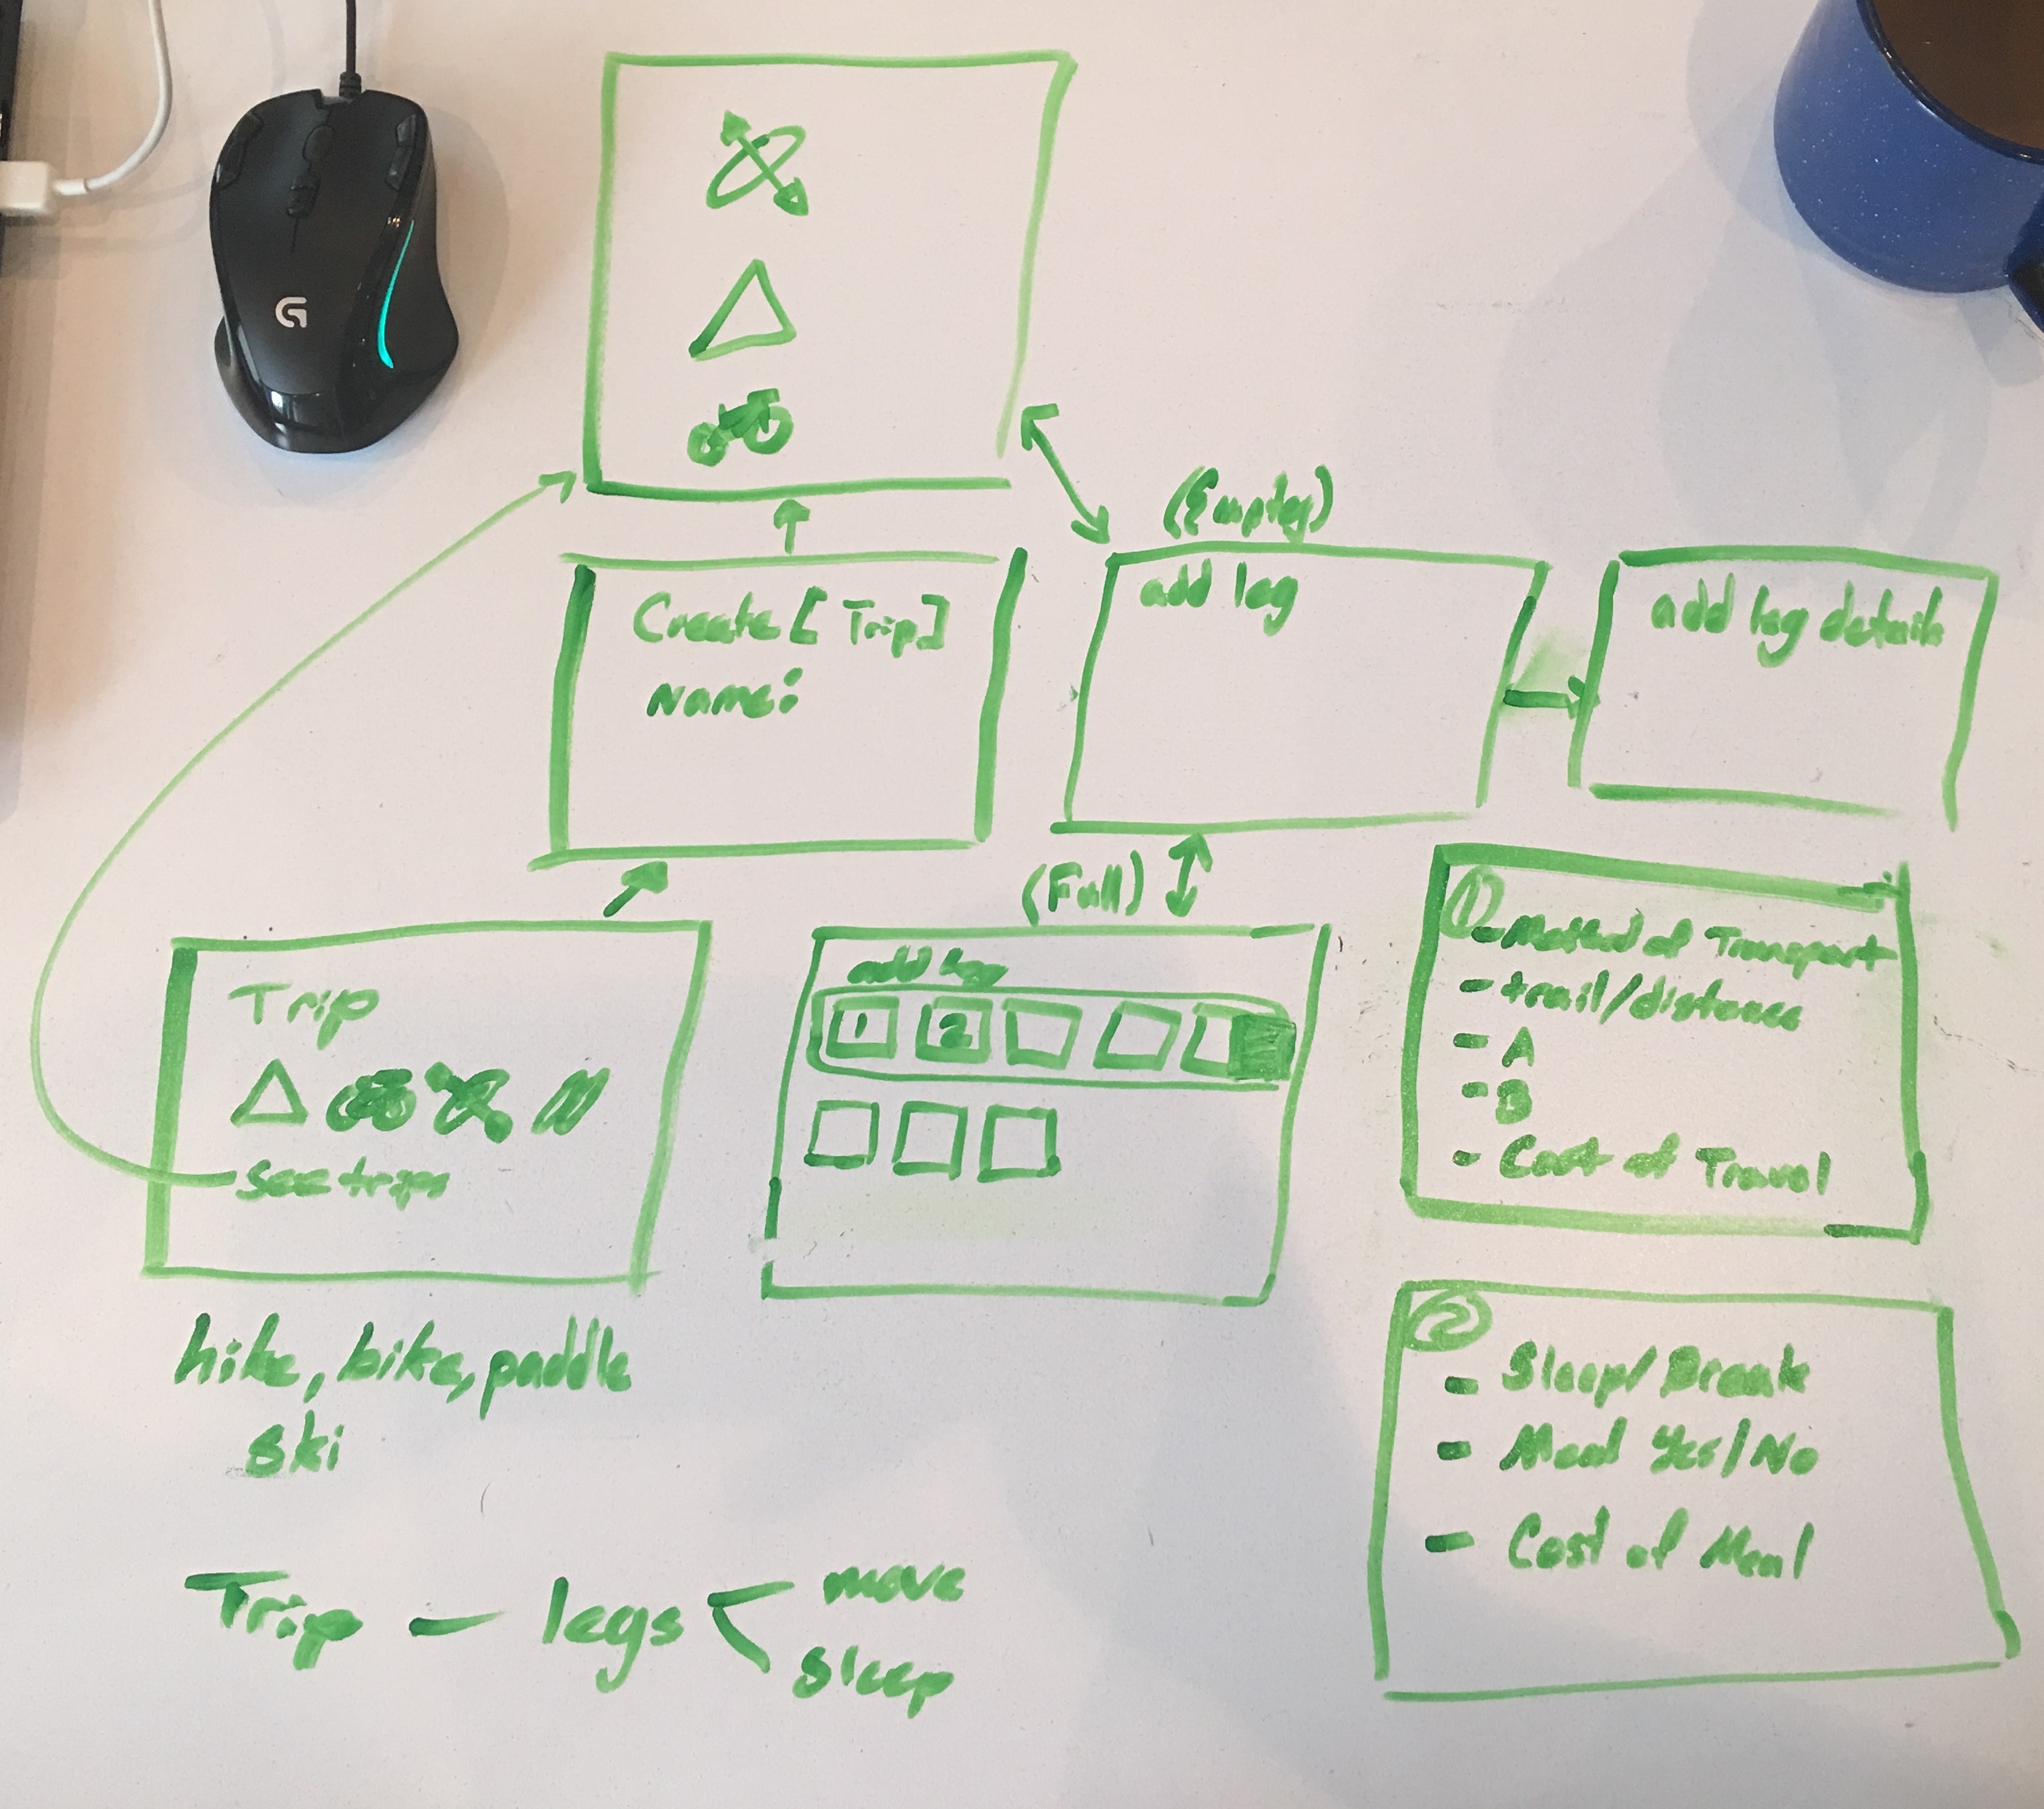 (Empty)
add leg
add leg details
Create [Trip]
Name:
(Full)
Trip
see trips
add leg
1 2
1
- Method of Transport
- trail/distance
- A
- B
- Cost of Travel
2
- Sleep/Break
- Meal Yes/No
- Cost of Meal
hike, bike, paddle
ski
Trip - legs < move
sleep
G